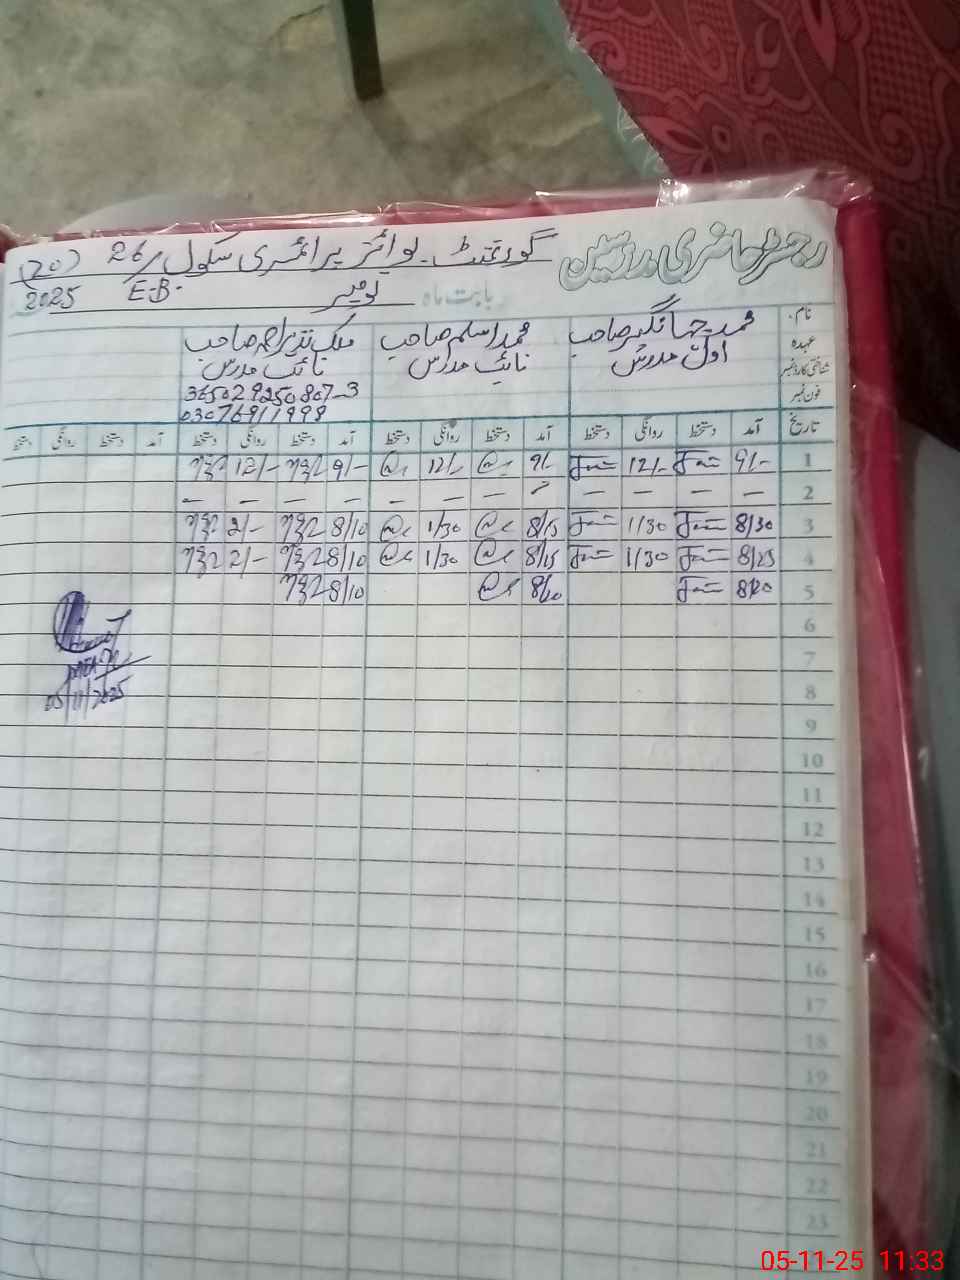 رجسٹر حاضری مدرسین گورنمنٹ بوائز پرائمری سکول 26/ (20)
بابت ماہ نومبر E.B. 2025
نام محمد جہانگیر صاحب محمد اسلم صاحب ملک نذیر احمد صاحب
عہدہ اول مدرس نائب مدرس نائب مدرس
شناختی کارڈ نمبر 365029250807-3
فون نمبر 03076911999
تاریخ آمد دستخط روانگی دستخط آمد دستخط روانگی دستخط آمد دستخط روانگی دستخط آمد دستخط روانگی دستخط
1 9/- 12/- 9/- 12/- 9/- 12/-
2 — — — — — — — — — — —
3 8/30 1/30 8/15 1/30 8/10 2/-
4 8/25 1/30 8/15 1/30 8/10 2/-
5 8/20 8/20 8/10
6
7
8
05/11/2025
9
10
11
12
13
14
15
16
17
18
19
20
21
22
23
05-11-25 11:33